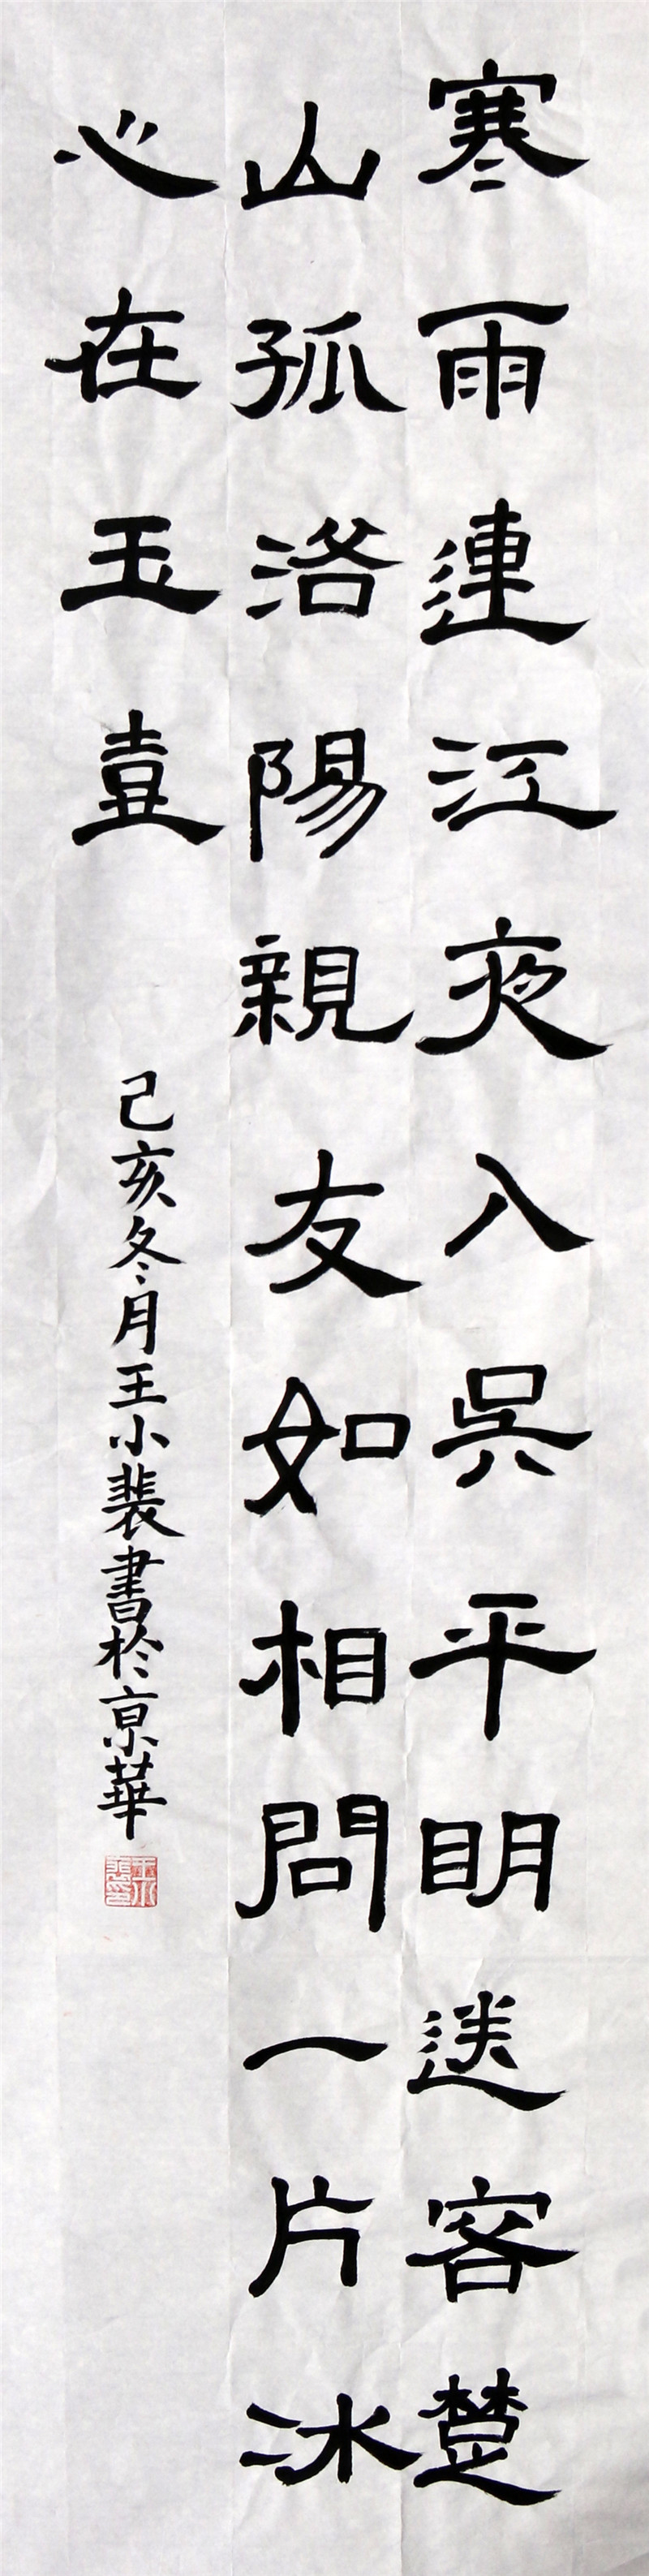 寒雨連江夜入吳平眀送客楚
山孤洛陽親友如相問一片冰
心在玉壺
己亥冬月王小裴書於亰華
王小裴印